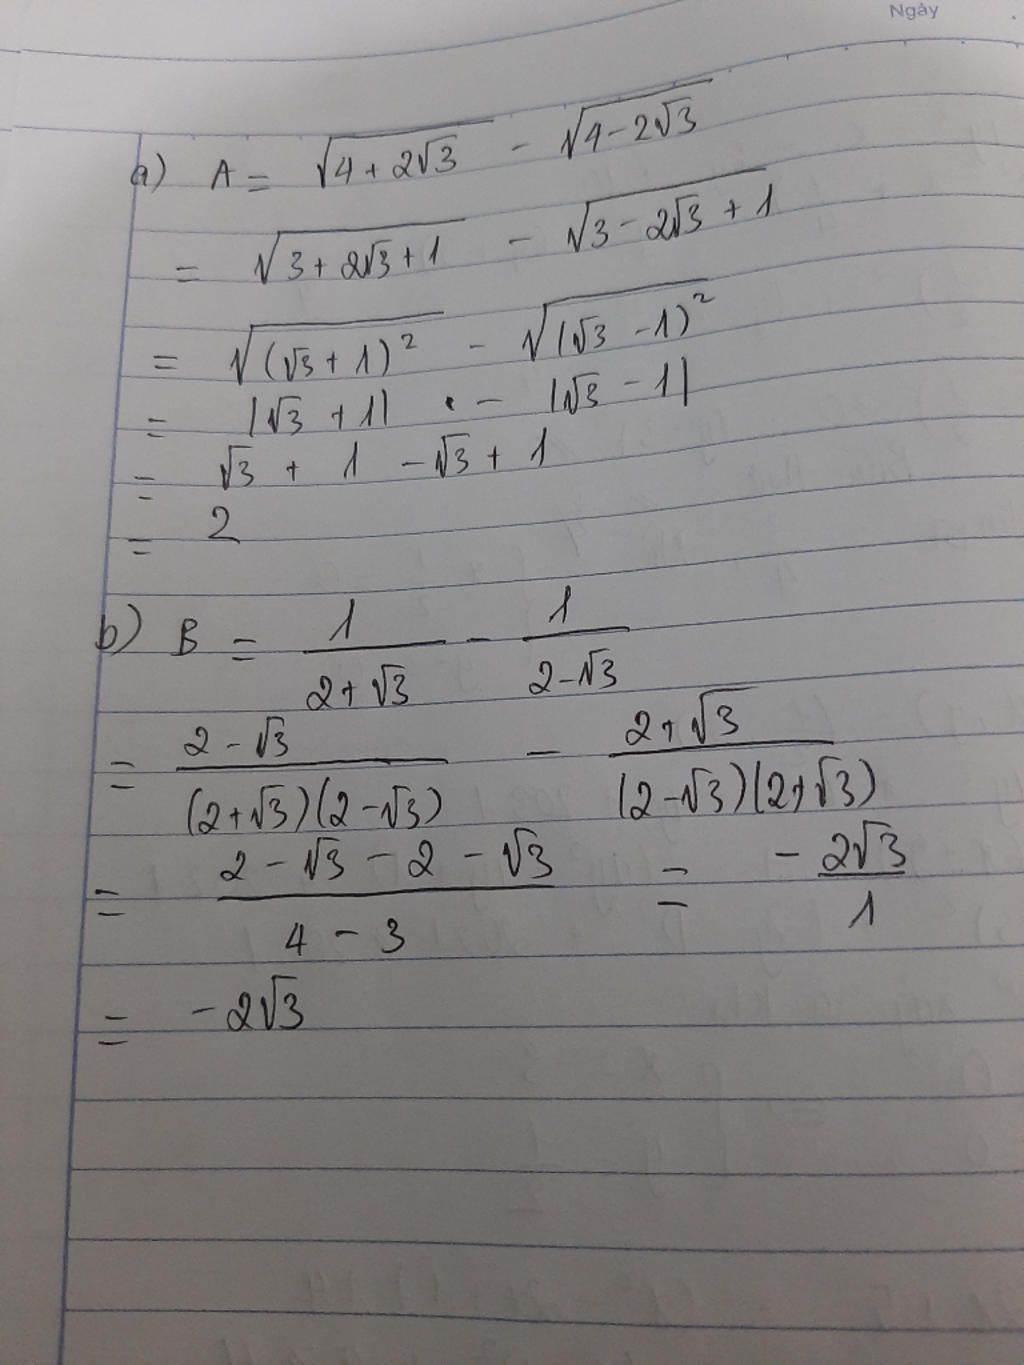 Ngày
a) A = √(4 + 2√3) - √(4 - 2√3)
= √(3 + 2√3 + 1) - √(3 - 2√3 + 1)
= √((√3 + 1)²) - √((√3 - 1)²)
= |√3 + 1| - |√3 - 1|
= √3 + 1 - √3 + 1
= 2
b) B = 1/(2 + √3) - 1/(2 - √3)
= (2 - √3)/((2 + √3)(2 - √3)) - (2 + √3)/((2 - √3)(2 + √3))
= (2 - √3 - 2 - √3)/(4 - 3) = - 2√3/1
= - 2√3